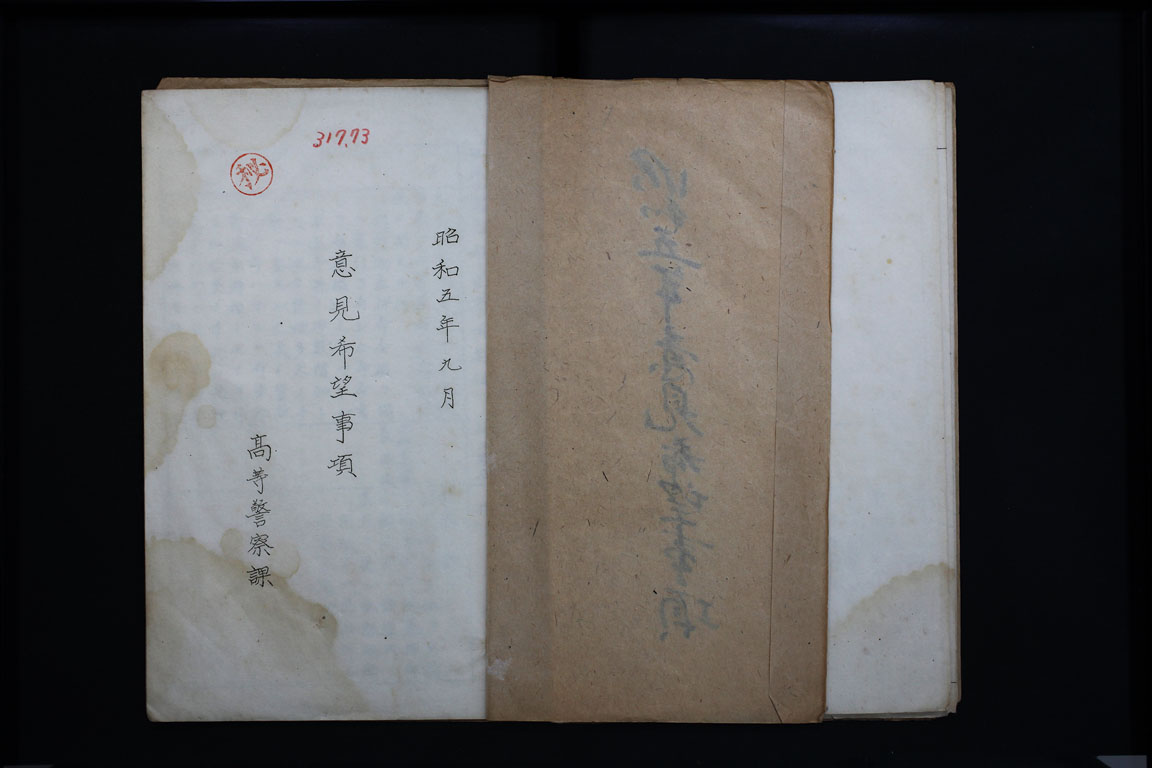 317.73
秘
昭和五年九月
意見希望事項
高等警察課
昭和五年意見希望事項